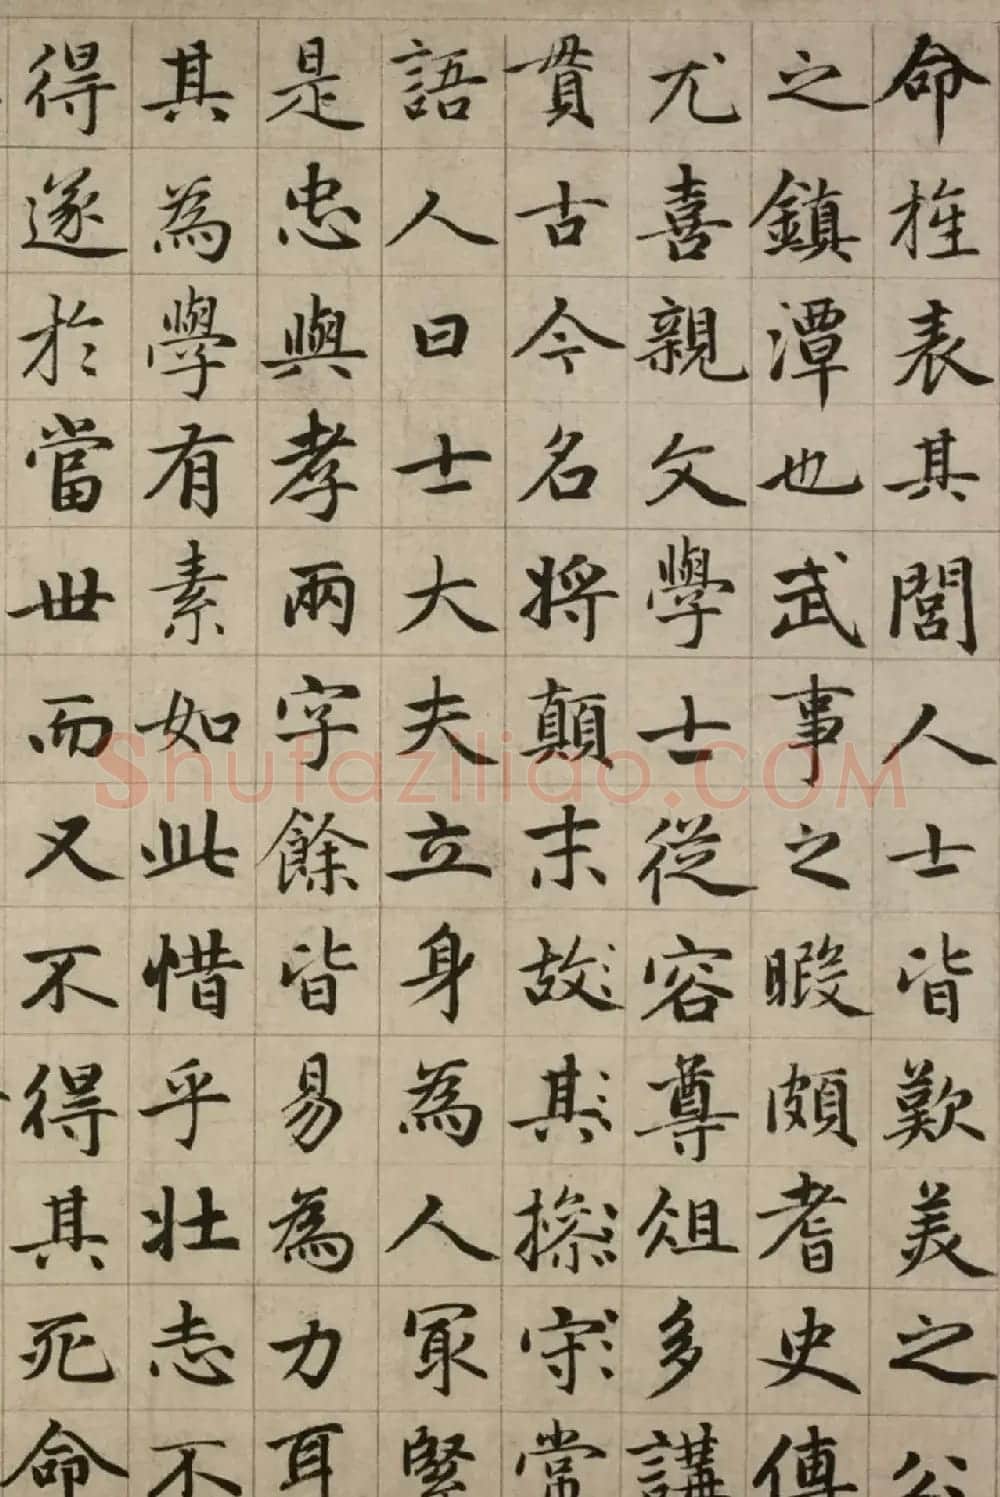 命旌表其閭人士皆歎美之公
之鎮潭也武事之暇頗耆史傳
尤喜親文學士從容尊俎多講
貫古今名將顛末故其摖守常
語人曰士大夫立身為人冣緊
是忠與孝兩字餘皆易為力耳
其為學有素如此惜乎壯志不
得遂於當世而又不得其死命
Shufaziliao.COM